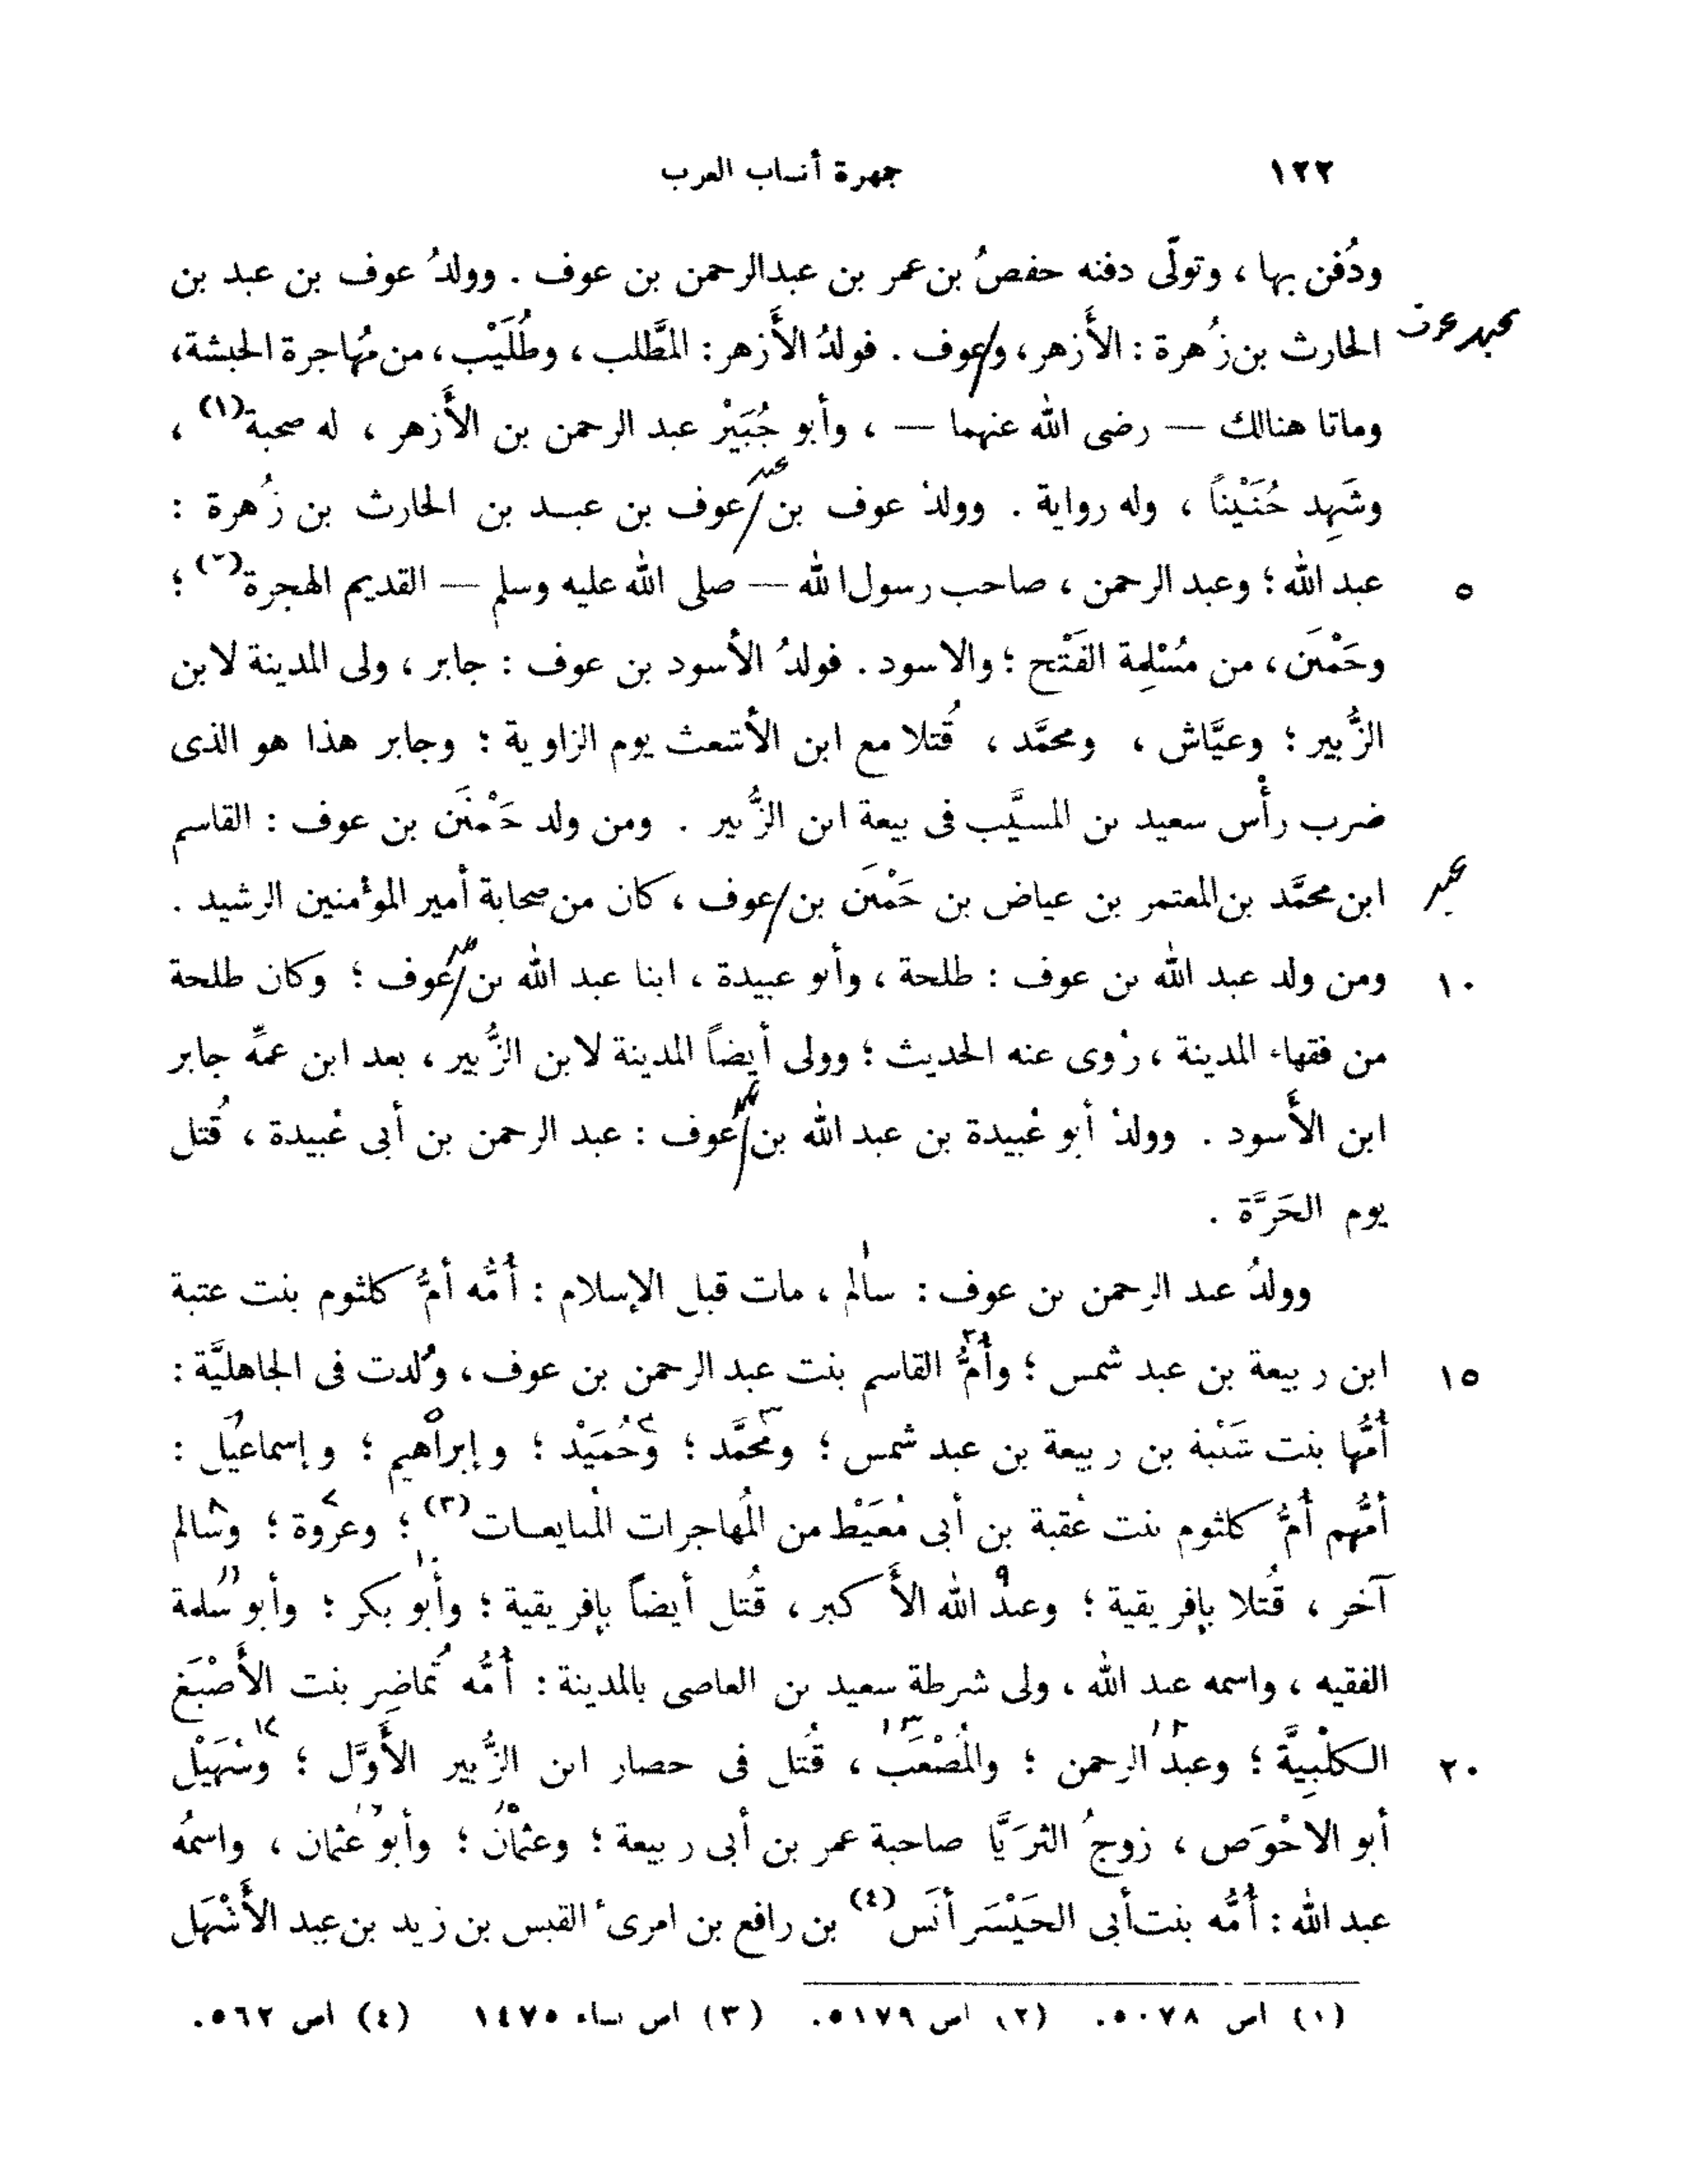 ١٢٢ جمهرة أنساب العرب
ودُفن بها ، وتولَّى دفنه حفصُ بن عمر بن عبدالرحمن بن عوف . وولدُ عوف بن عبد بن
الحارث بن زُهرة : الأَزهر ، وعوف . فولدُ الأَزهر : المطَّلب ، وطُلَيْب ، من مُهاجرة الحبشة ،
عبد عوف
وماتا هنالك — رضى الله عنهما — ، وأبو جُبَيْر عبد الرحمن بن الأَزهر ، له صحبة (١) ،
عبد
وشَهِد حُنَيْناً ، وله رواية . وولدُ عوف بن عوف بن عبد بن الحارث بن زُهرة :
٥ عبد الله ؛ وعبد الرحمن ، صاحب رسول الله — صلى الله عليه وسلم — القديم الهجرة (٢) ؛
وحَمْنَن ، من مُسْلِمة الفَتْح ؛ والاسود . فولدُ الأسود بن عوف : جابر ، ولى المدينة لابن
الزُّبير ؛ وعيَّاش ، ومحمَّد ، قُتلا مع ابن الأشعث يوم الزاوية ؛ وجابر هذا هو الذى
ضرب رأْس سعيد بن المسيَّب فى بيعة ابن الزُّبير . ومن ولد حَمْنَن بن عوف : القاسم
ابن محمَّد بن المعتمر بن عياض بن حَمْنَن بن عوف ، كان من صحابة أمير المؤمنين الرشيد .
عبد
١٠ ومن ولد عبد الله بن عوف : طلحة ، وأبو عبيدة ، ابنا عبد الله بن عوف ؛ وكان طلحة
عبد
من فقهاء المدينة ، رُوى عنه الحديث ؛ وولى أيضاً المدينة لابن الزُّبير ، بعد ابن عمِّه جابر
عبد
ابن الأَسود . وولدُ أبو عُبيدة بن عبد الله بن عوف : عبد الرحمن بن أبى عُبيدة ، قُتل
يوم الحَرَّة .
وولدُ عبد الرحمن بن عوف : سالم ١ ، مات قبل الإسلام : أُمُّه أمُّ كلثوم بنت عتبة
١٥ ابن ربيعة بن عبد شمس ؛ وأُمُّ ٢ القاسم بنت عبد الرحمن بن عوف ، وُلدت فى الجاهليَّة :
أُمُّها بنت شَيْبة بن ربيعة بن عبد شمس ؛ ومحمَّد ٣ ؛ وحُمَيْد ٤ ؛ وإبراهيم ٥ ؛ وإسماعيل ٦ :
أمُّهم أُمُّ كلثوم بنت عُقبة بن أبى مُعَيْط من المُهاجرات المُبايعات (٣) ؛ وعروة ٧ ؛ وسالم ٨
آخر ، قُتلا بإفريقية ؛ وعبدُ ٩ الله الأَكبر ، قُتل أيضاً بإفريقية ؛ وأبو ١٠ بكر ؛ وأبو ١١ سلمة
الفقيه ، واسمه عبد الله ، ولى شرطة سعيد بن العاصى بالمدينة : أُمُّه تُماضِر بنت الأَصْبَغ
٢٠ الكلْبِيَّة ؛ وعبدُ ١٢ الرحمن ؛ والمُصْعَب ١٣ ، قُتل فى حصار ابن الزُّبير الأَوَّل ؛ وسُهَيْل ١٤
أبو الاحْوَص ، زوجُ الثرَيَّا صاحبة عمر بن أبى ربيعة ؛ وعثمان ١٥ ؛ وأبو ١٦ عثمان ، واسمُه
عبد الله : أُمُّه بنت أبى الحَيْسَر أنَس (٤) بن رافع بن امرىء القيس بن زيد بن عبد الأَشْهَل
(١) اص ٥٠٧٨. (٢) اص ٥١٧٩. (٣) اص نساء ١٤٧٥ (٤) اص ٥٦٢.